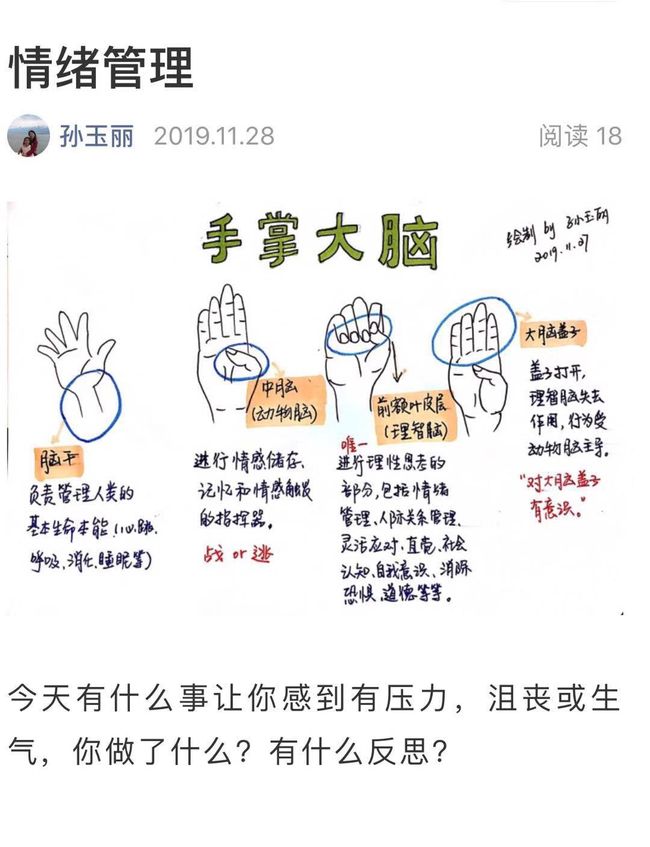 情绪管理
孙玉丽 2019.11.28 阅读 18
手掌大脑
绘制 by 孙玉丽
2019.11.27
脑干
负责管理人类的
基本生命本能(心跳、
呼吸、消化、睡眠等)
中脑
(动物脑)
进行情感储存、
记忆和情感触发
的指挥器。
战 or 逃
前额叶皮层
(理智脑)
唯一
进行理性思考的
部分,包括情绪
管理、人际关系管理、
灵活应对、直觉、社会
认知、自我意识、消除
恐惧、道德等等。
大脑盖子
盖子打开,
理智脑失去
作用,行为受
动物脑主导。
“对大脑盖子
有意识。”
今天有什么事让你感到有压力，沮丧或生
气，你做了什么？有什么反思？